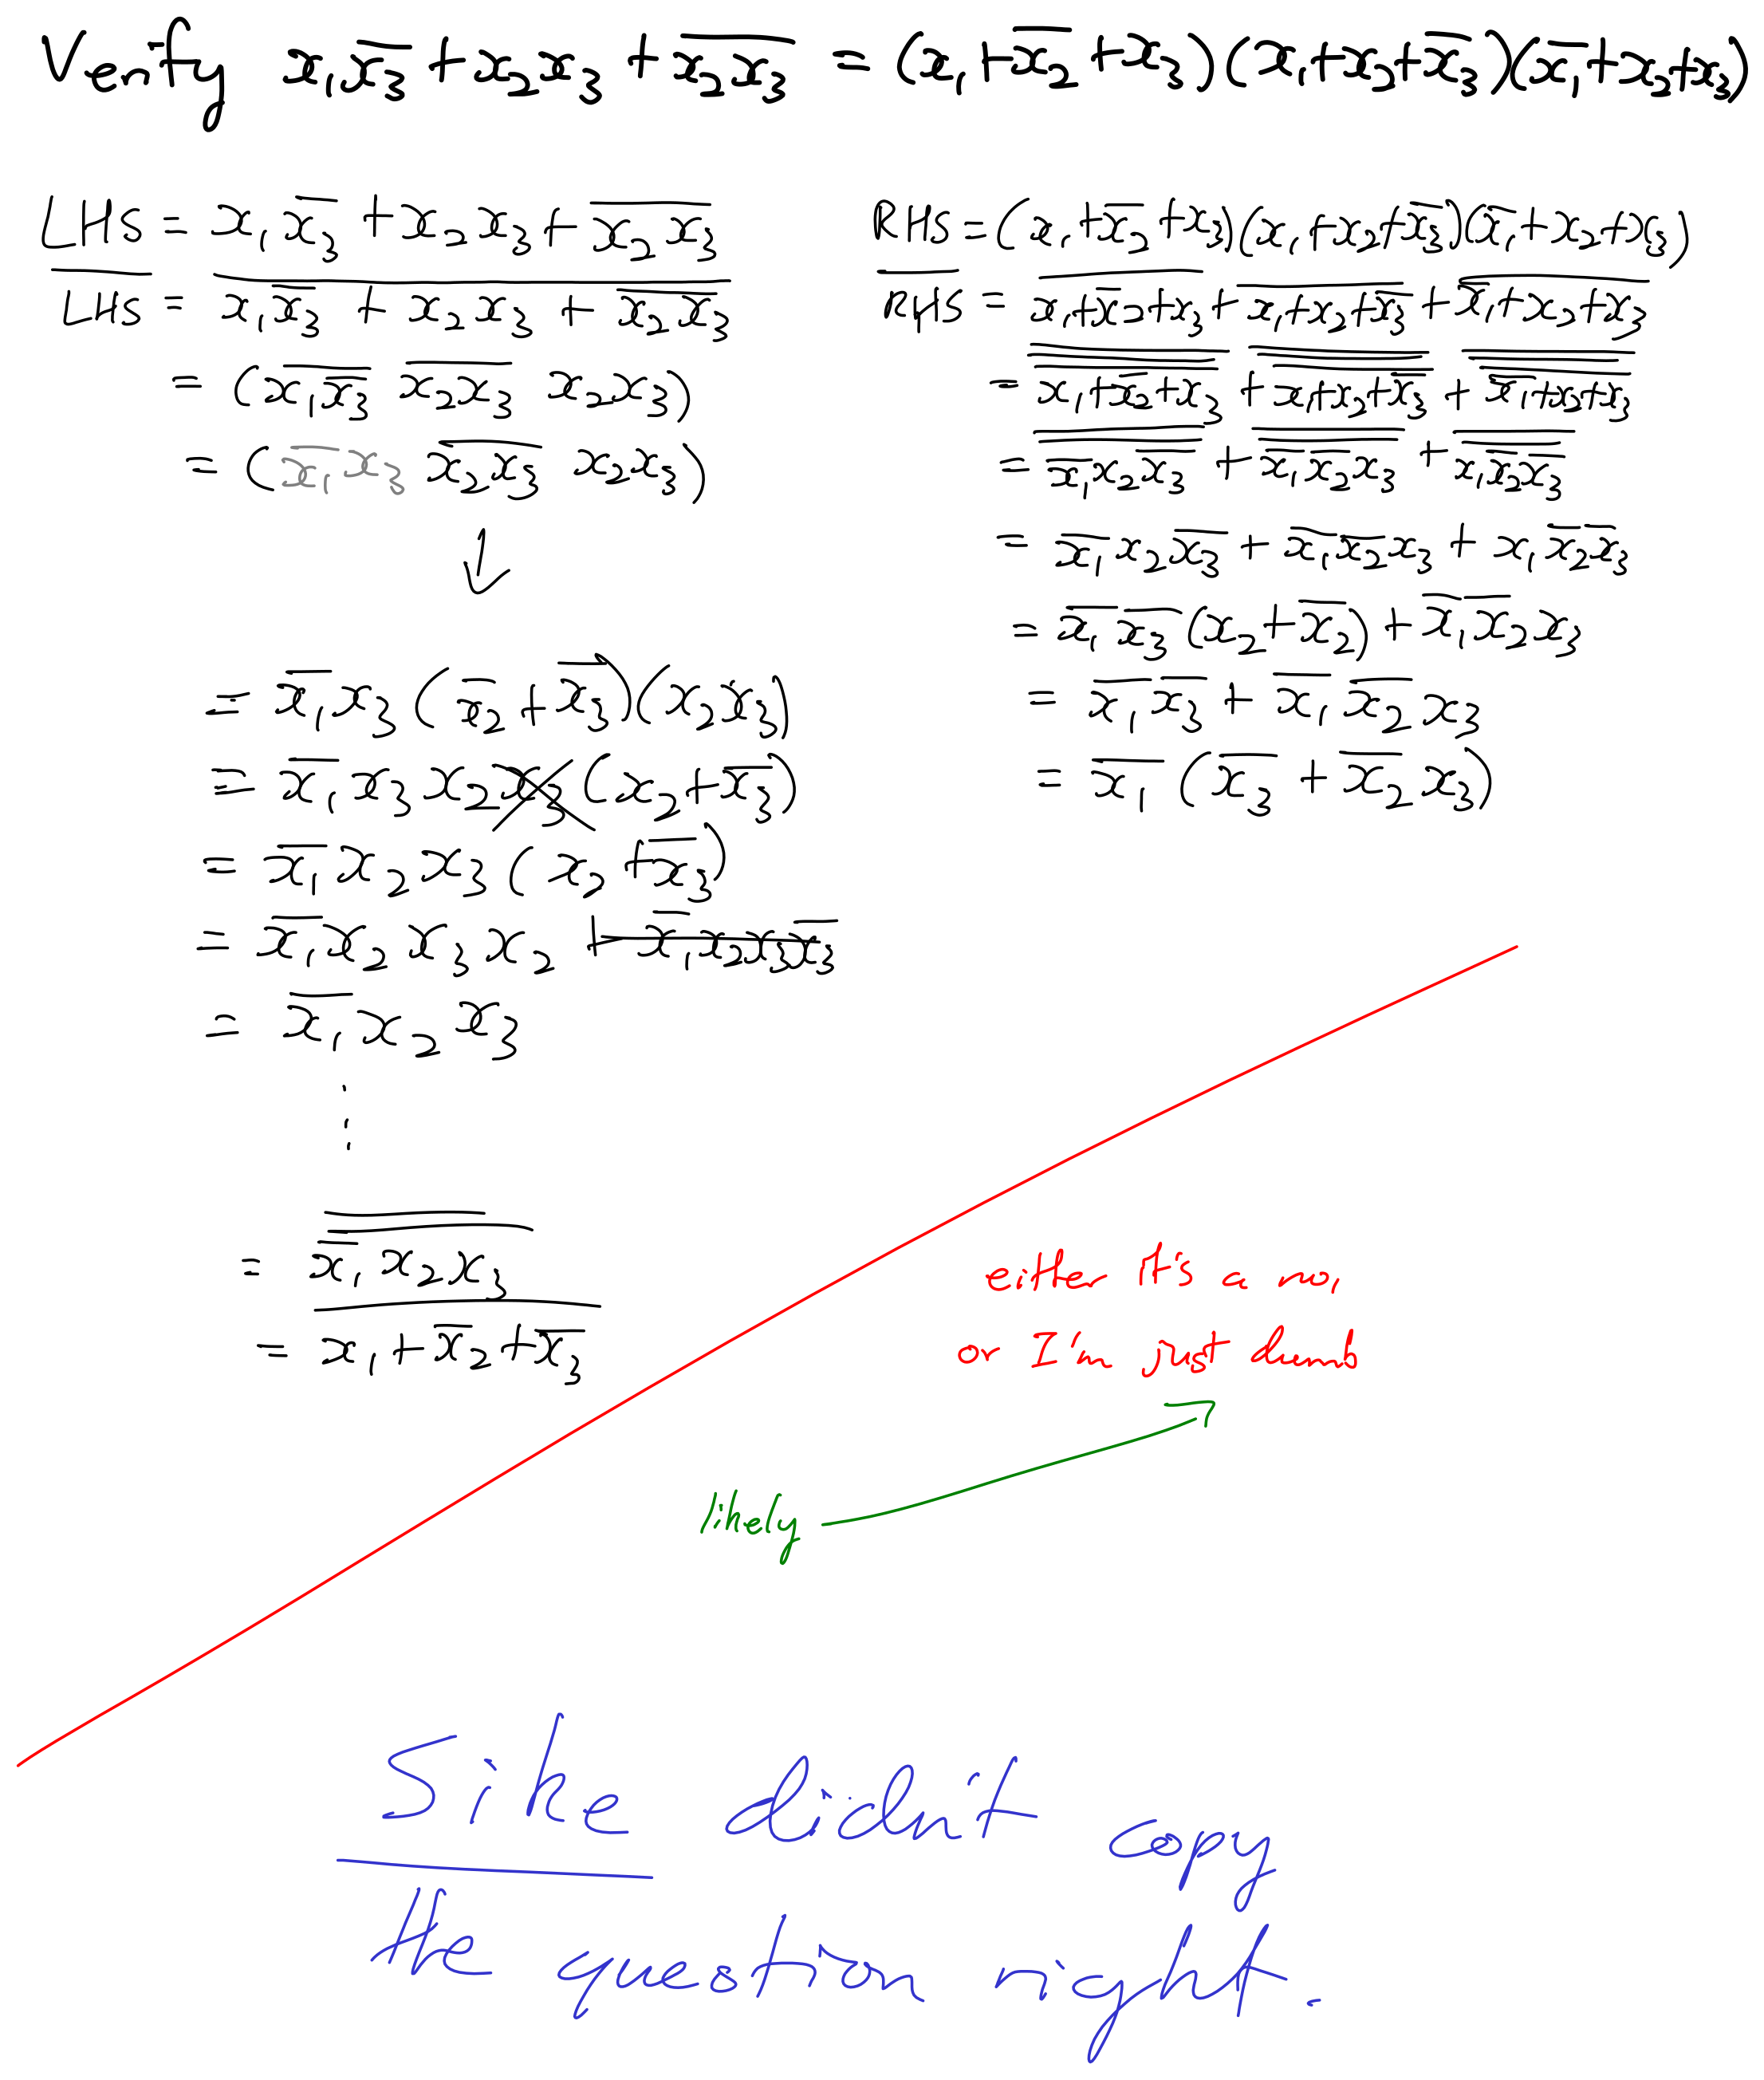 Verify $x_1\overline{x_3}+x_2x_3+\overline{x_2x_3}=(x_1+\overline{x_2}+x_3)(x_1+x_2+\overline{x_3})(\overline{x_1}+x_2+x_3)$
LHS $= x_1\overline{x_3}+x_2x_3+\overline{x_2x_3}$
$\overline{\text{LHS}} = \overline{x_1\overline{x_3}+x_2x_3+\overline{x_2x_3}}$
$= (\overline{x_1\overline{x_3}}\ \overline{x_2x_3}\ x_2x_3)$
$= (\overline{x_1}x_3\ \overline{x_2x_3}\ x_2x_3)$
↓
$= \overline{x_1}x_3(\overline{x_2}+\overline{x_3})(x_2x_3)$
$= \overline{x_1}x_3x_2x_3(x_2+\overline{x_3})$
$= \overline{x_1}x_2x_3(x_2+\overline{x_3})$
$= \overline{x_1}x_2x_3x_2+\overline{x_1}x_2x_3\overline{x_3}$
$= \overline{x_1}x_2x_3$
⋮
$= \overline{\overline{\overline{x_1}x_2x_3}}$
$= \overline{x_1+\overline{x_2}+\overline{x_3}}$
RHS $= (x_1+\overline{x_2}+x_3)(x_1+x_2+\overline{x_3})(\overline{x_1}+x_2+x_3)$
$\overline{\text{RHS}} = \overline{x_1+\overline{x_2}+x_3}+\overline{x_1+x_2+\overline{x_3}}+\overline{\overline{x_1}+x_2+x_3}$
$= \overline{\overline{\overline{x_1+\overline{x_2}+x_3}}}+\overline{\overline{\overline{x_1+x_2+\overline{x_3}}}}+\overline{\overline{\overline{\overline{x_1}+x_2+x_3}}}$
$= \overline{\overline{\overline{x_1}x_2\overline{x_3}}}+\overline{\overline{\overline{x_1}\,\overline{x_2}x_3}}+\overline{\overline{x_1\overline{x_2}\,\overline{x_3}}}$
$= \overline{x_1}x_2\overline{x_3}+\overline{x_1}\,\overline{x_2}x_3+x_1\overline{x_2}\,\overline{x_3}$
$= \overline{x_1}\,\overline{x_3}(x_2+\overline{x_2})+\overline{x_1}\,\overline{x_2}x_3$
$= \overline{x_1}\,\overline{x_3}+\overline{x_1}\,\overline{x_2}x_3$
$= \overline{x_1}(\overline{x_3}+\overline{x_2}x_3)$
either it's a no,
or I'm just dumb
likely
Sike didn't copy
the question right.